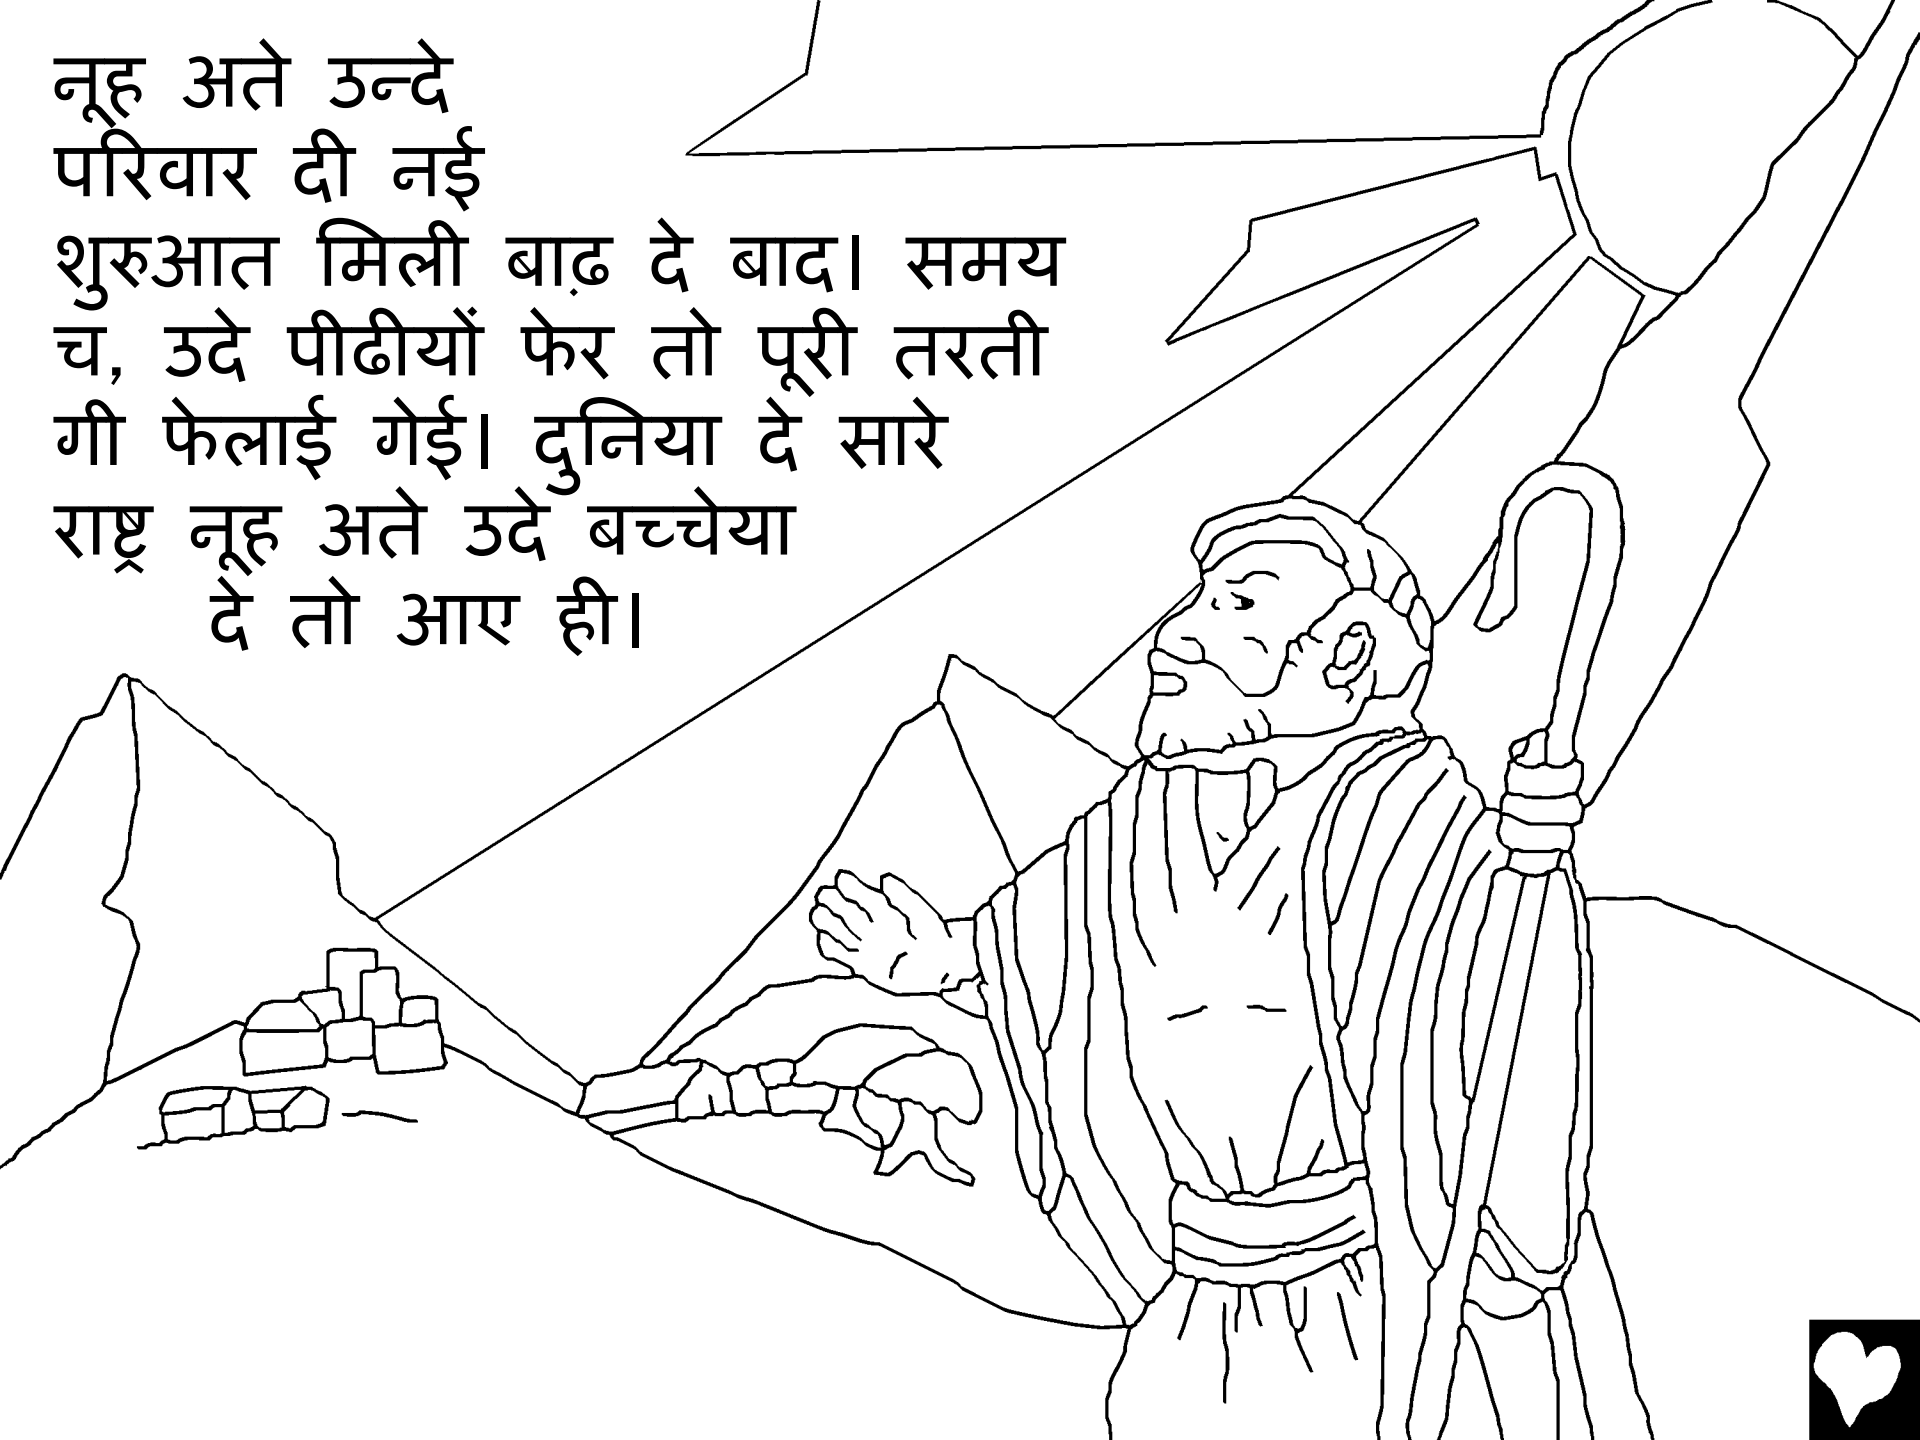 नूह अते उन्दे
परिवार दी नई
शुरुआत मिली बाढ़ दे बाद। समय
च, उदे पीढीयों फेर तो पूरी तरती
गी फेलाई गेई। दुनिया दे सारे
राष्ट्र नूह अते उदे बच्चेया
दे तो आए ही।